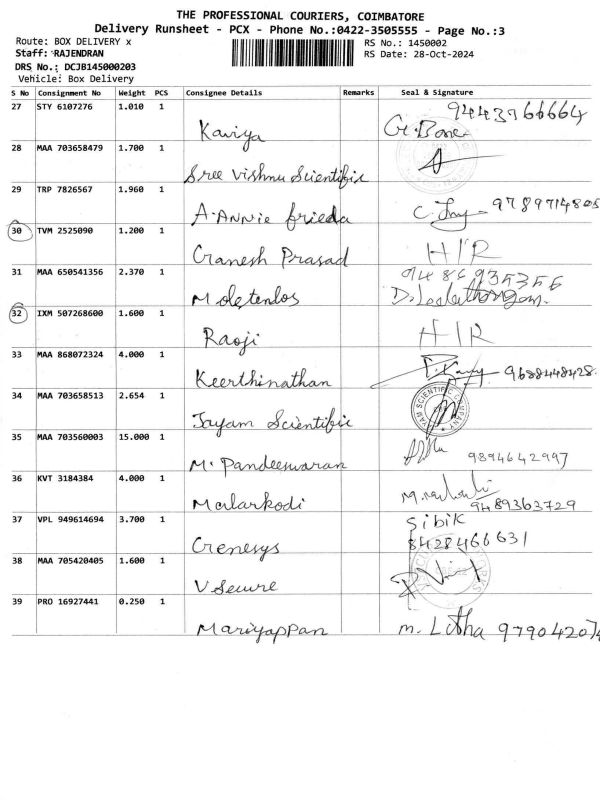 THE PROFESSIONAL COURIERS, COIMBATORE
Delivery Runsheet - PCX - Phone No.:0422-3505555 - Page No.:3
Route: BOX DELIVERY x
RS No.: 1450002
Staff: RAJENDRAN
RS Date: 28-Oct-2024
DRS No.: DCJB145000203
Vehicle: Box Delivery
S No Consignment No Weight PCS Consignee Details Remarks Seal & Signature
27 STY 6107276 1.010 1
Kaviya 9443966664
28 MAA 703658479 1.700 1
Sree Vishnu Scientific
29 TRP 7826567 1.960 1
A. Annie frieda 9789714805
30 TVM 2525090 1.200 1
Ganesh Prasad H/R
31 MAA 650541356 2.370 1
Moletenlos 9486935356
32 IXM 507268600 1.600 1
Raoji H/R
33 MAA 868072324 4.000 1
Keerthinathan 9688448428
34 MAA 703658513 2.654 1
Jayam Scientific
35 MAA 703560003 15.000 1
M. Pandeeswaran 9894642997
36 KVT 3184384 4.000 1
Malarkodi 9489363729
37 VPL 949614694 3.700 1
Sibik
Genesys 8428466631
38 MAA 705420405 1.600 1
V Secure
39 PRO 16927441 0.250 1
Mariyappan m. Latha 979042074